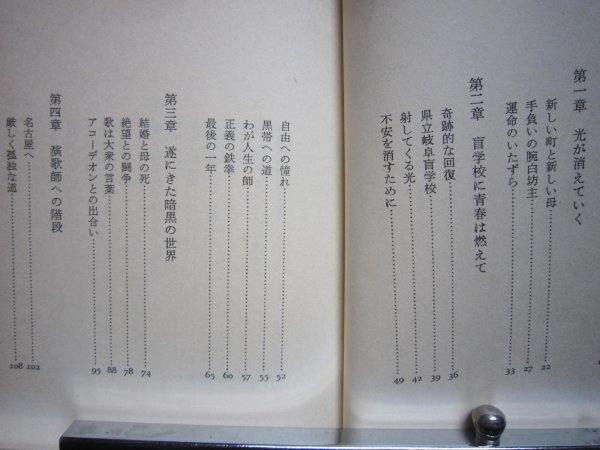 第一章 光が消えていく
新しい町と新しい母……22
手負いの腕白坊主……27
運命のいたずら……33
第二章 盲学校に青春は燃えて
奇跡的な回復……36
県立岐阜盲学校……39
射してくる光……42
不安を消すために……49
自由への憧れ……52
黒帯への道……55
わが人生の師……57
正義の鉄拳……60
最後の一年……65
第三章 遂にきた暗黒の世界
結婚と母の死……74
絶望との闘争……78
歌は大衆の言葉……88
アコーデオンとの出合い……95
第四章 演歌師への階段
名古屋へ……102
厳しく孤独な道……108